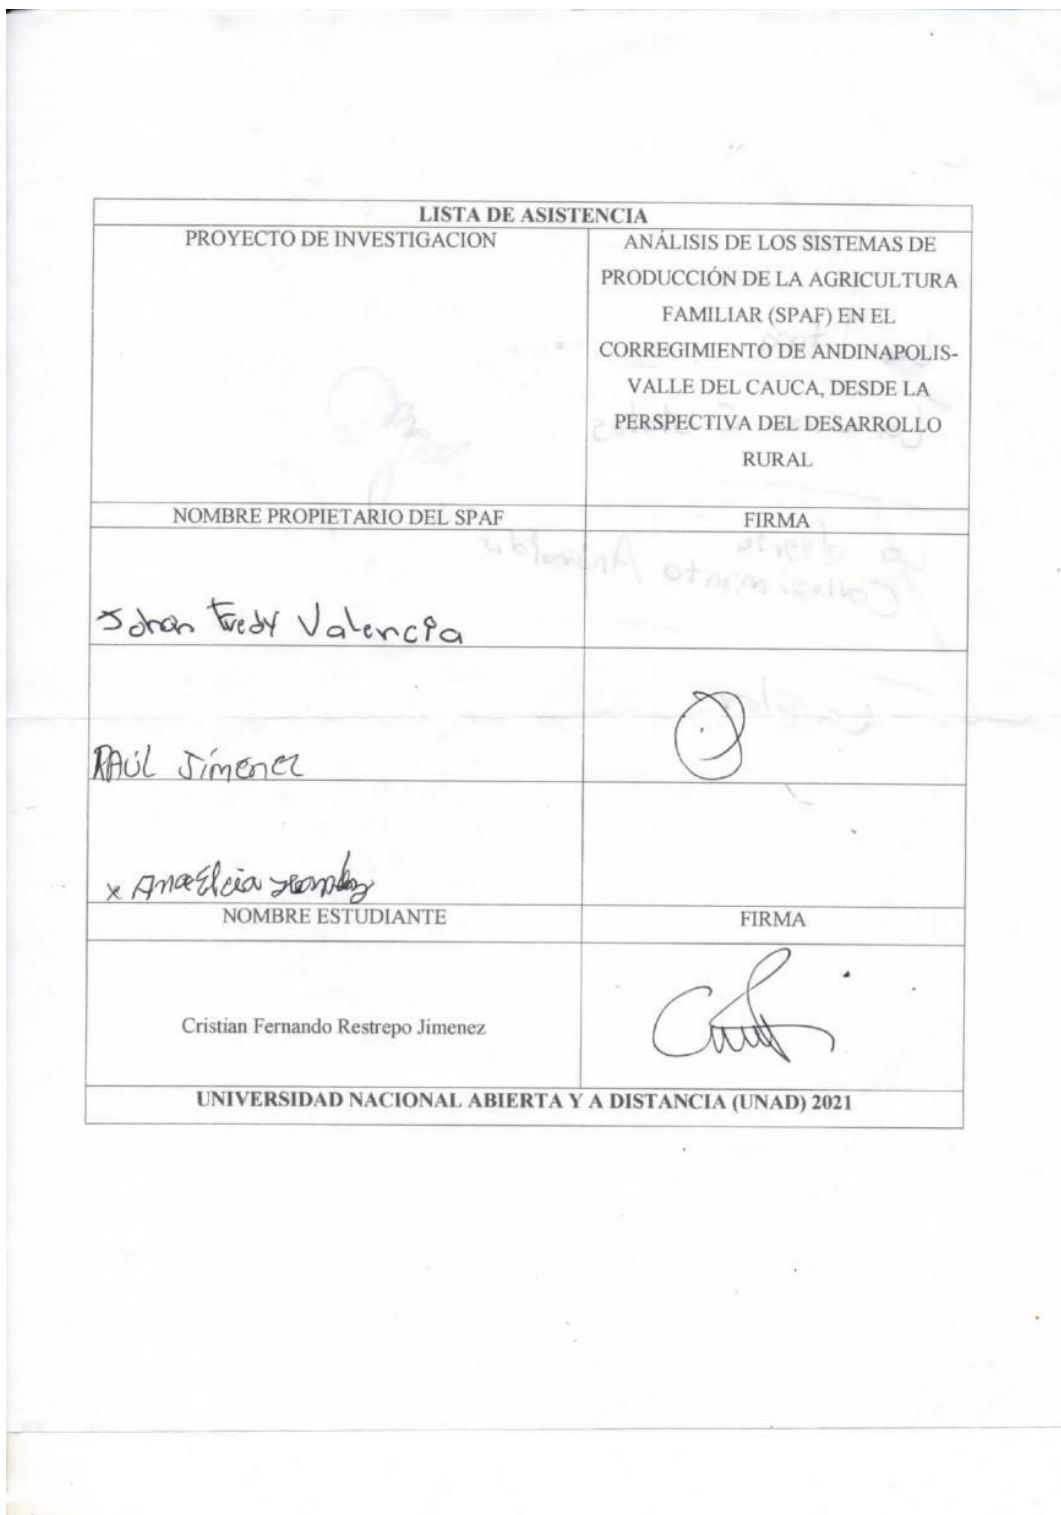 LISTA DE ASISTENCIA
PROYECTO DE INVESTIGACION
ANÁLISIS DE LOS SISTEMAS DE
PRODUCCIÓN DE LA AGRICULTURA
FAMILIAR (SPAF) EN EL
CORREGIMIENTO DE ANDINAPOLIS-
VALLE DEL CAUCA, DESDE LA
PERSPECTIVA DEL DESARROLLO
RURAL
NOMBRE PROPIETARIO DEL SPAF
FIRMA
Johan Fredy Valencia
RAÚL Jímenez
x Ana Elcia
NOMBRE ESTUDIANTE
FIRMA
Cristian Fernando Restrepo Jimenez
UNIVERSIDAD NACIONAL ABIERTA Y A DISTANCIA (UNAD) 2021